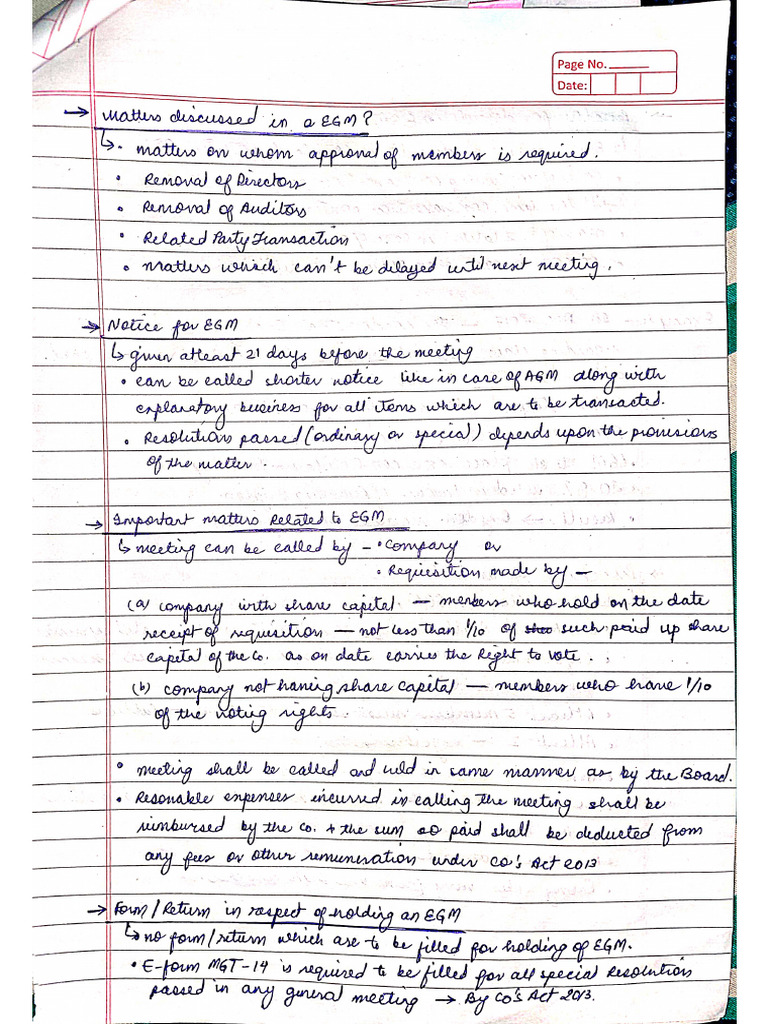 Page No.
Date:
→ Matters discussed in a EGM?
↳ • matters on whom approval of members is required.
• Removal of Directors
• Removal of Auditors
• Related Party Transaction
• Matters which can't be delayed until next meeting.
→ Notice for EGM
↳ given atleast 21 days before the meeting
• can be called shorter notice like in case of AGM along with
explanatory business for all items which are to be transacted.
• Resolution passed (ordinary or special) depends upon the provisions
of the matter.
→ Important matters Related to EGM
↳ meeting can be called by – • Company or
• Requisition made by –
(a) company with share capital – members who hold on the date
receipt of requisition – not less than 1/10 of such paid up share
capital of the Co. as on date carries the Right to vote.
(b) company not having share capital – members who have 1/10
of the voting rights.
• meeting shall be called and held in same manner as by the Board.
• Resonable expenses incurred in calling the meeting shall be
reimbursed by the Co. & the sum so paid shall be deducted from
any fees or other remuneration under Co's Act 2013
→ Form/Return in respect of holding an EGM
↳ no form/return which are to be filled for holding of EGM.
• E-form MGT-14 is required to be filled for all special Resolution
passed in any general meeting → By Co's Act 2013.